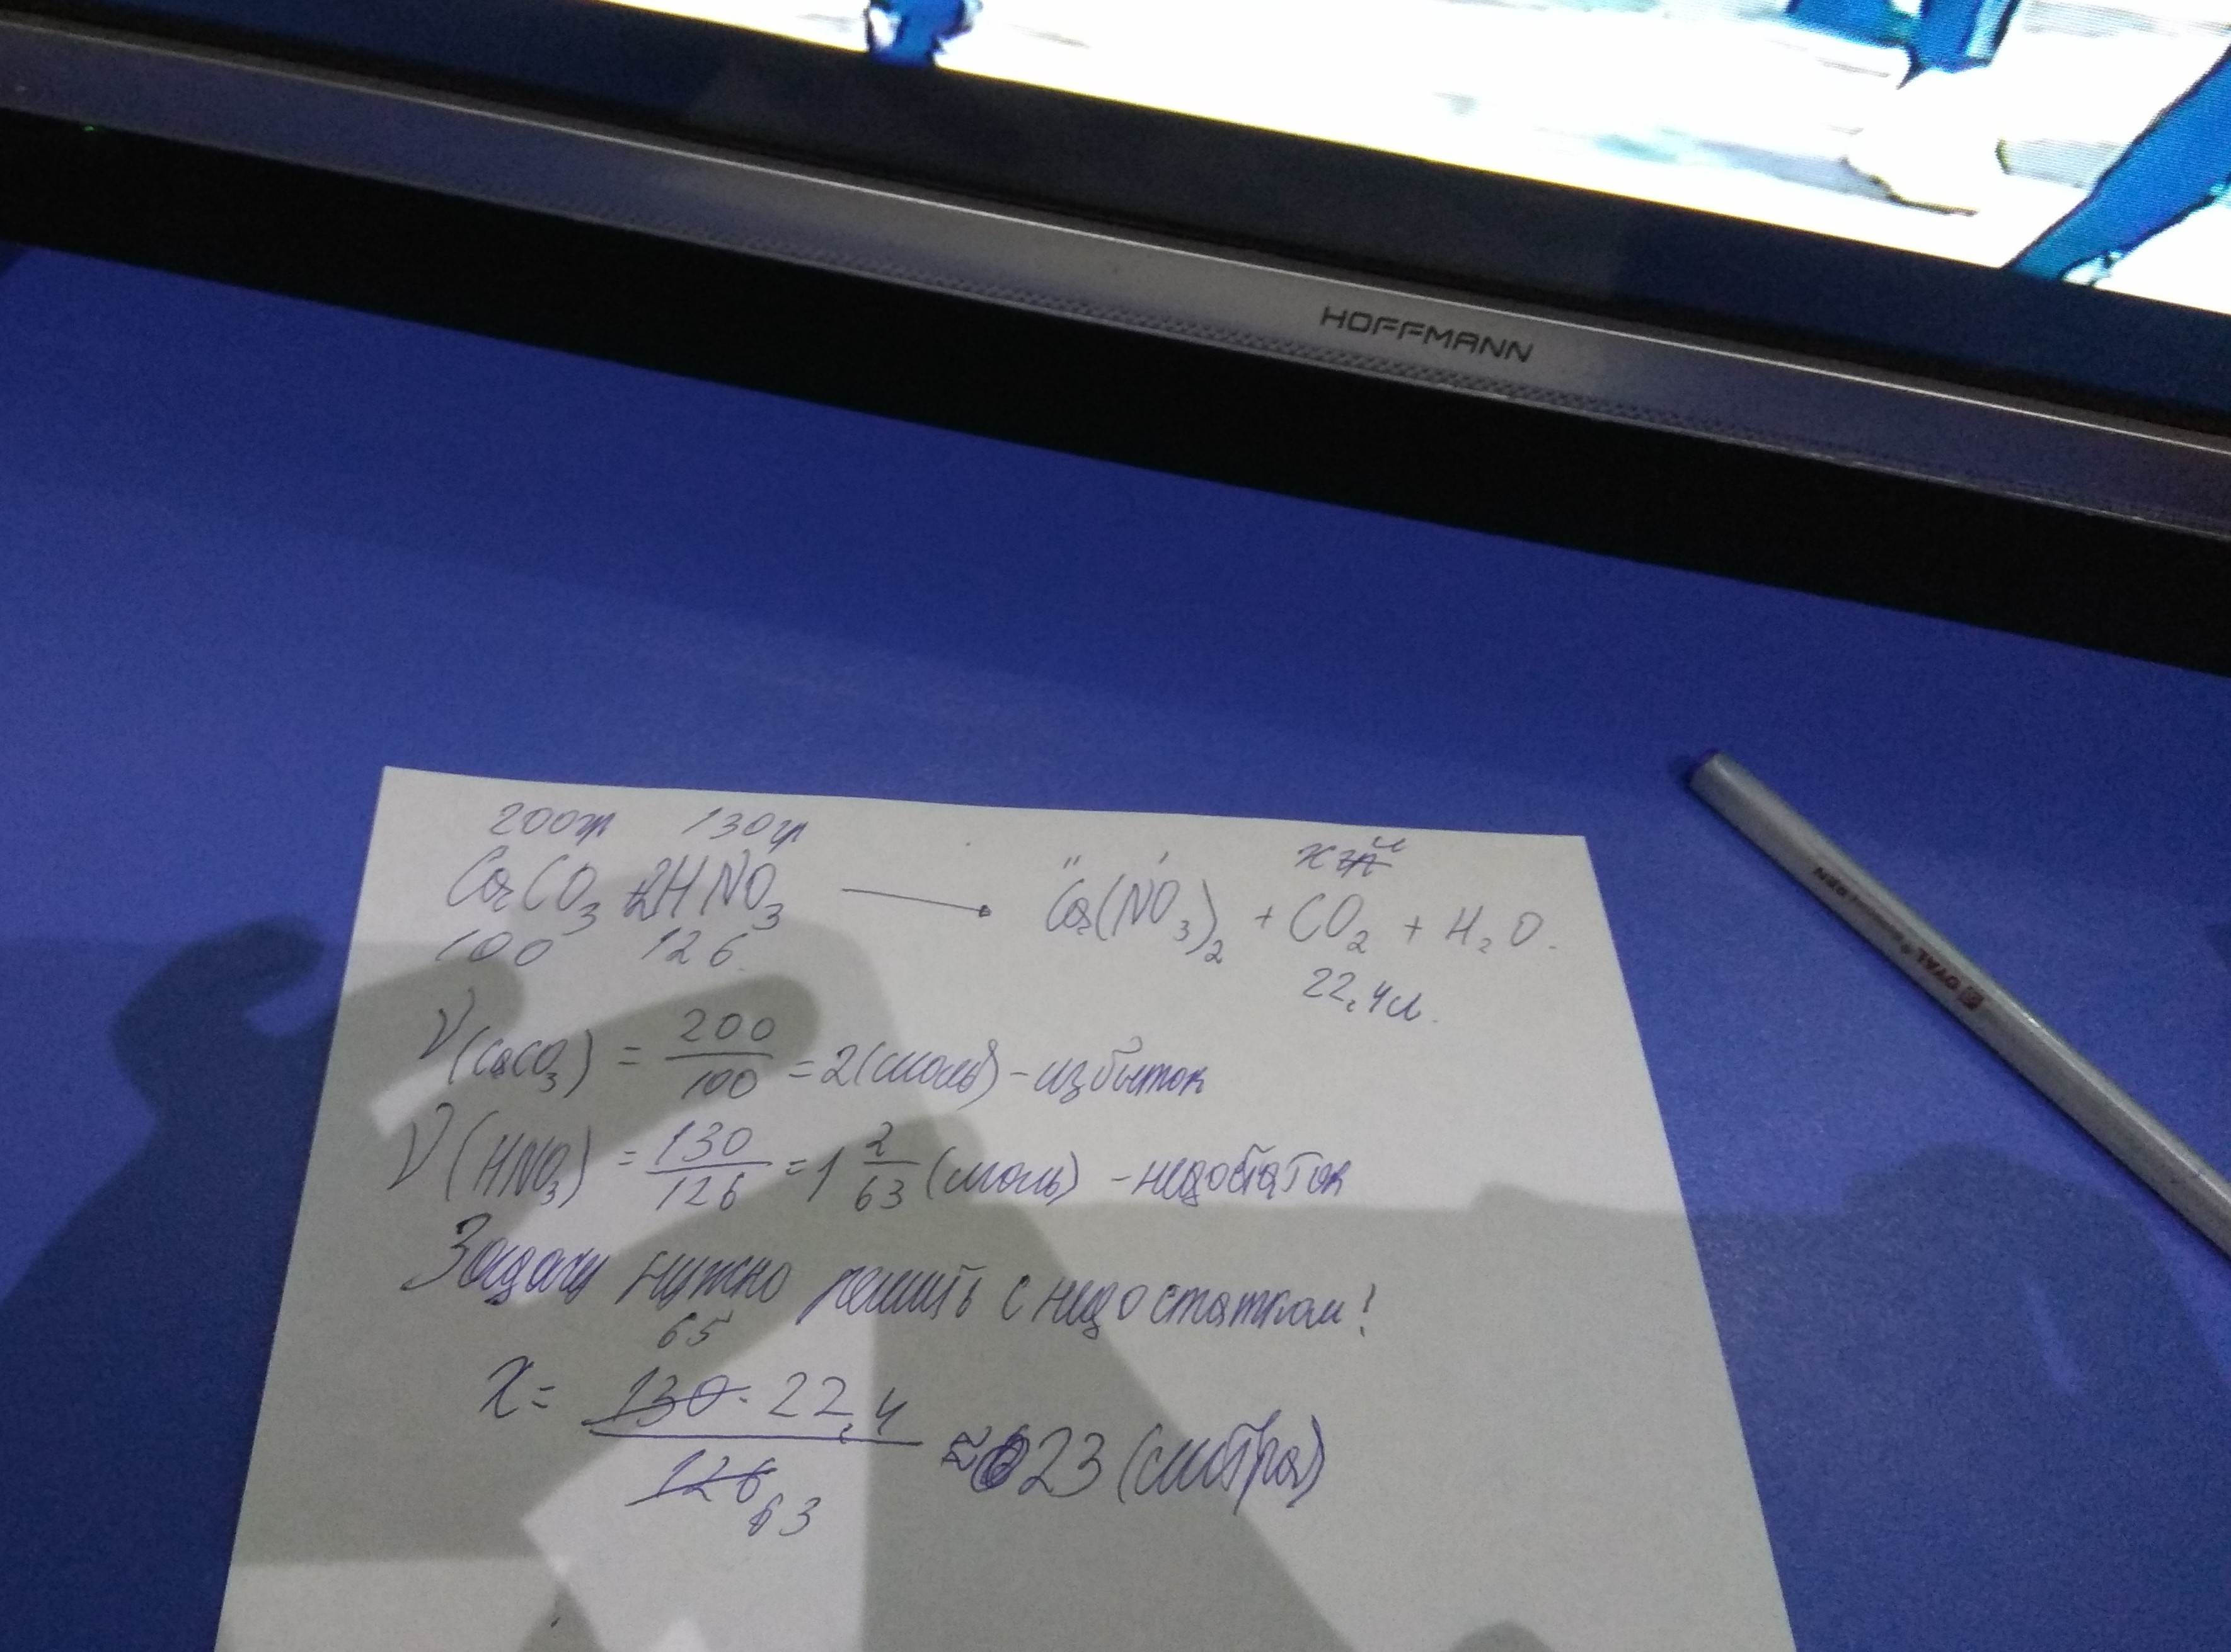 HOFFMANN
200гр 130гр
х л
CaCO3 + 2HNO3 → Ca(NO3)2 + CO2 + H2O.
100 126
22,4л.
ν(CaCO3) = 200/100 = 2(моль) - избыток
ν(HNO3) = 130/126 = 1 2/63 (моль) - недостаток
Задачу нужно решить с недостатком!
65
x = 130 · 22,4 / 126 ≈ 23 (литра)
63